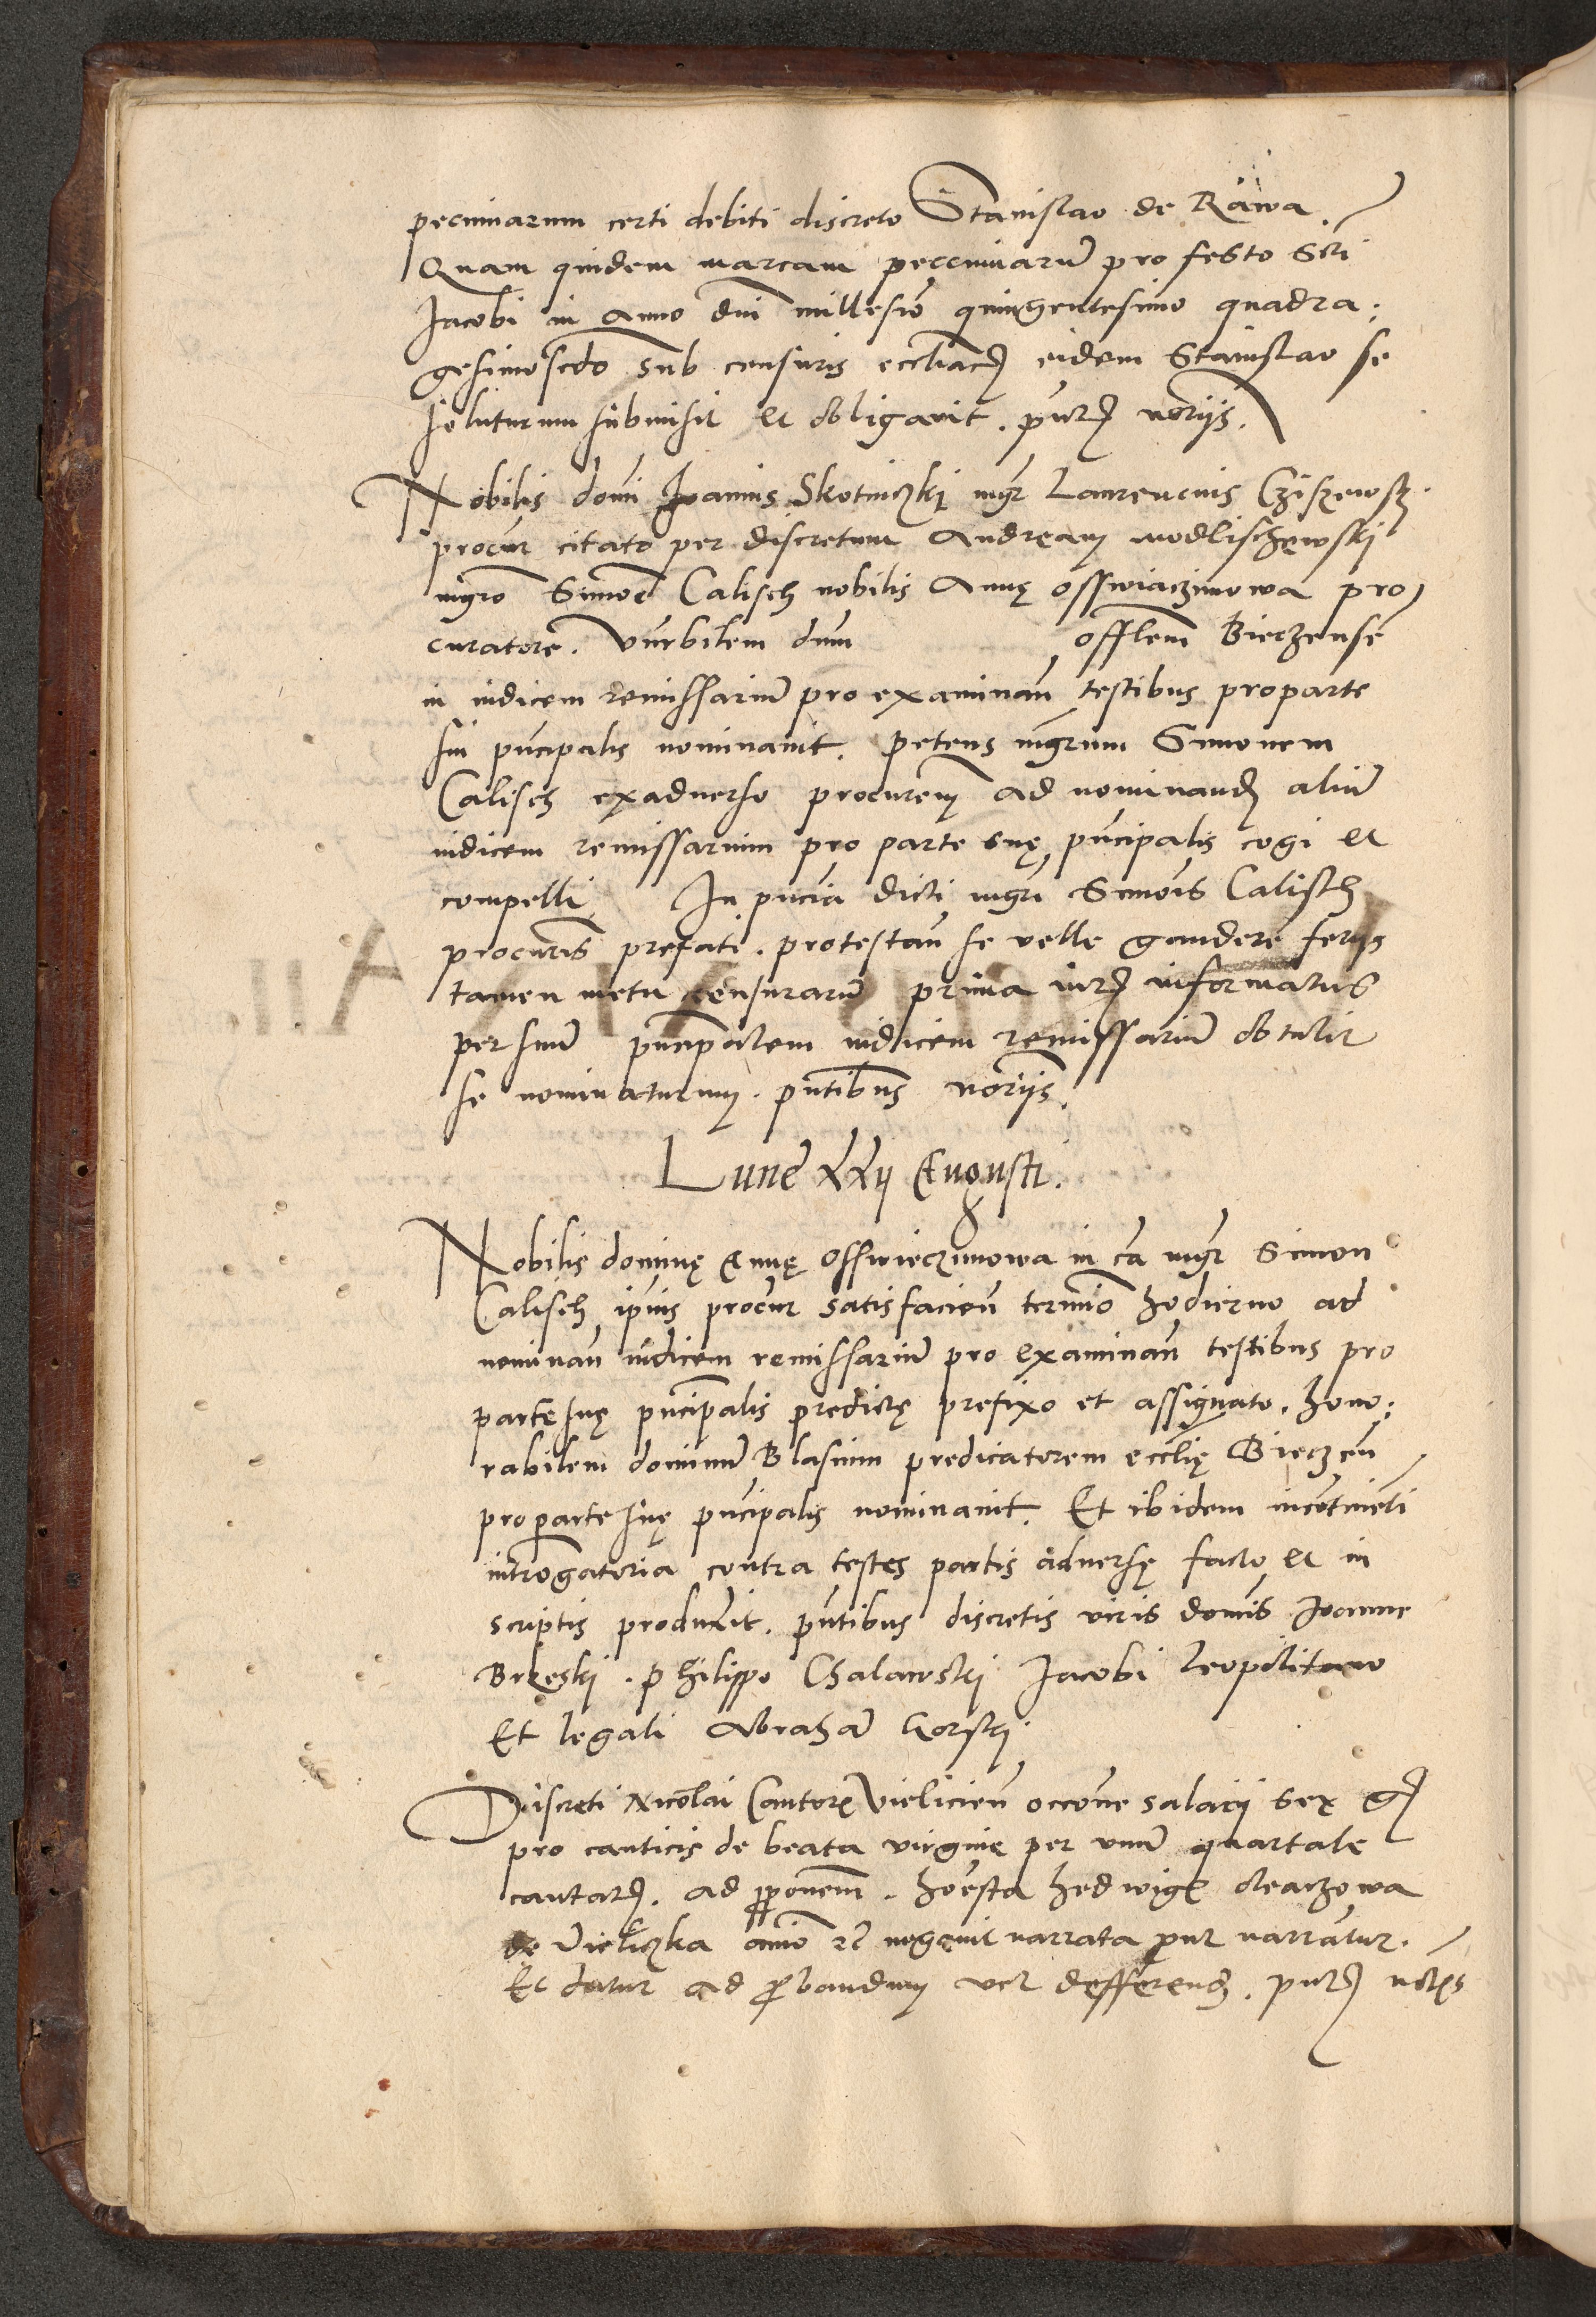 pecuniarum certi debiti discreto Stanislao de Rawa.
Quam quidem marcam peccuniarũ pro festo Scti
Jacobi in anno dni millesiõ quingentesimo quadra:
gesimoscdo sub censuris ecclıacꝭ eidem Stanislao se
soluturum submisit et obligavit. pntꝭ norijs.
Nobilis domi Joannis Skotniczkj mgr Laurencius Czisewsz.
procur citato per discretum Andream modlischewskj
mgro Simoẽ Calisch nobilis Annę osswiaczimowa pro
curatore. vnrbilem dum offlem Bieczensẽ
in iudicem remissariũ pro examinan testibus proparte
sui pncipalis nominauit. petens mgrum Simonem
Calisch exaduerso procurem ad nominandꝭ aliũ
iudicem remissarium pro parte suę pncipalis cogi et
compelli. In pncia dicti mgri Simõis Calisch
procuris prefati. protestan se velle gaudere ferijs
tamen metu censurarũ prima iurꝭ informatus
per suũ pncipalem iudicem remissariũ obtulit
se nominaturum. pntibus norijs.
Lune XXij Augusti.
Nobilis dominę Annę osswieczimowa in ca mgr Simon
Calisch ipius procur satisfacien termio hodierno ad
nominan iudicem remissariũ pro examinan testibus pro
parte suę pncipalis predictę prefixo et assignato. hono:
rabilem dominũ Blasium predicatorem ecclię Bieczen
proparte suę pncipalis nominauit. Et ibidem incontineti
introgatoria contra testes partis aduersę facto et in
scriptis produxit. pntibus discretis viris domis Joanne
Brzeskj. philippo Chalawskj Jacobi leopolitano
Et legali Abrahã Gorskj.
Discreti Nicolai Cantorꝭ Vielicien occone salarij sex gꝭ
pro canticis de beata virginę per vnũ quartale
cantatꝭ. ad pponem. honesta hedwigꝭ oleaczowa
de Vieliczka animo rẽ negauit narrata put narratur.
Et datur ad probandum vel defferendꝭ. pntꝭ